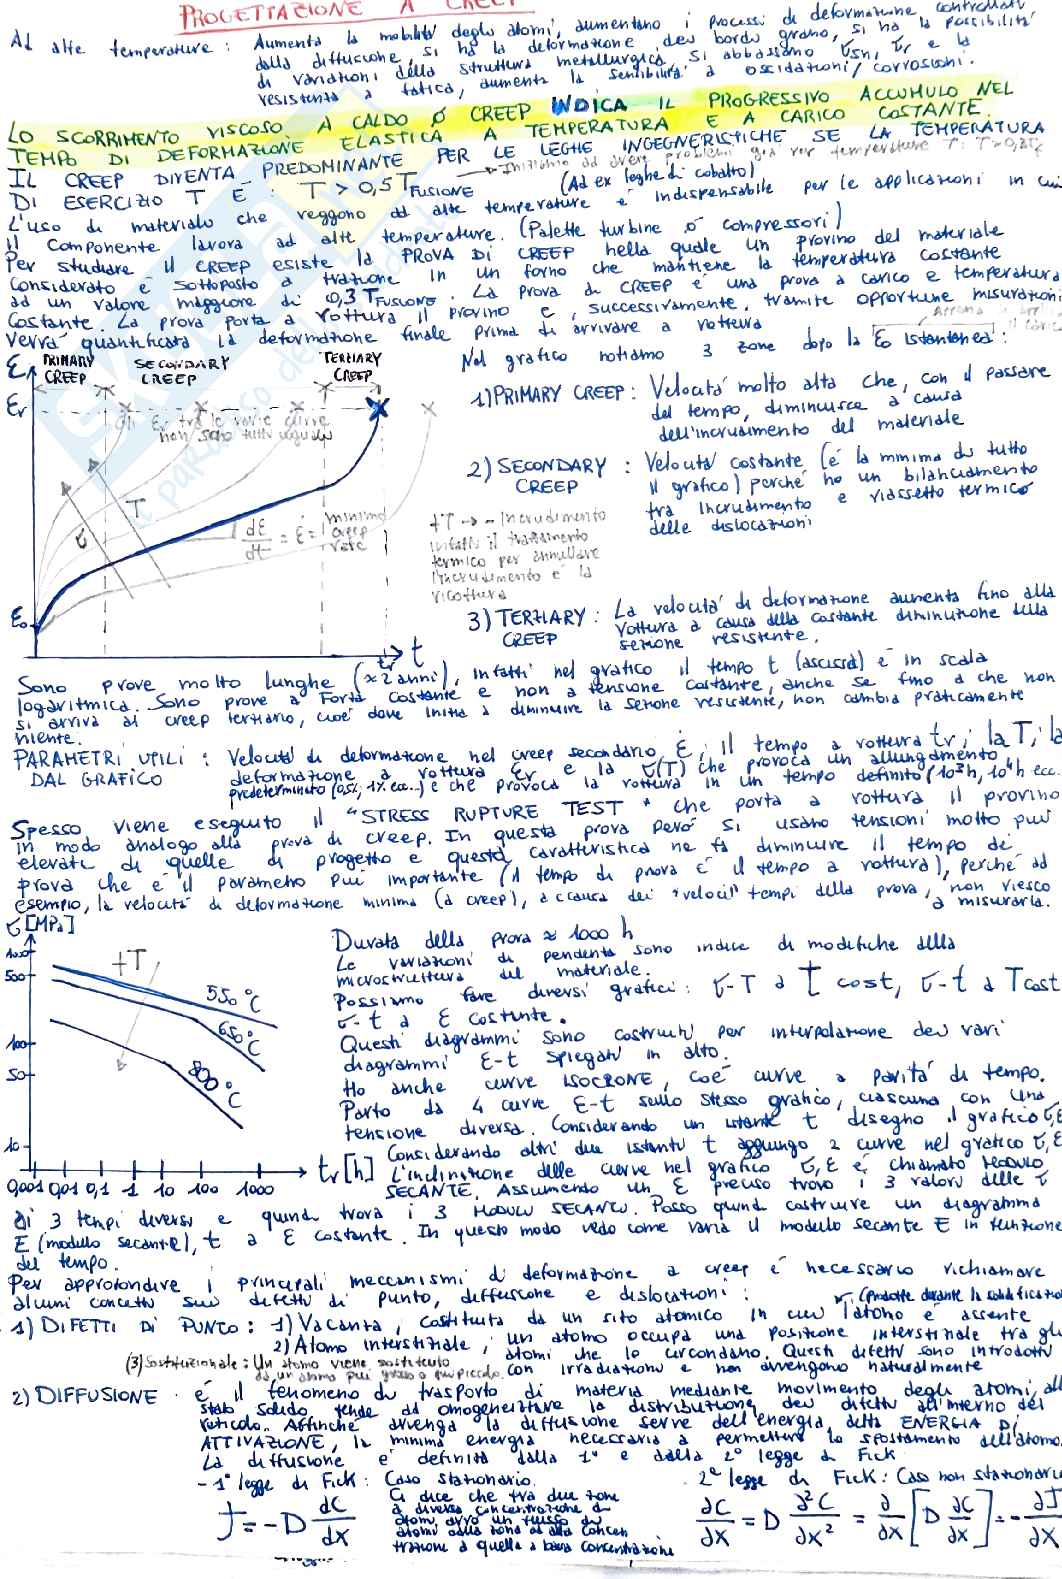 PROGETTAZIONE A CREEP
Ad alte temperature: Aumenta la mobilità degli atomi, aumentano i processi di deformazione controllati
dalla diffusione, si ha la deformazione dei bordi grano, si ha la possibilità
di variazioni della struttura metallurgica, si abbassano σsn, σr e la
resistenza a fatica, aumenta la sensibilità a ossidazioni/corrosioni.
LO SCORRIMENTO VISCOSO A CALDO O CREEP INDICA IL PROGRESSIVO ACCUMULO NEL
TEMPO DI DEFORMAZIONE ELASTICA A TEMPERATURA E A CARICO COSTANTE.
IL CREEP DIVENTA PREDOMINANTE PER LE LEGHE INGEGNERISTICHE SE LA TEMPERATURA
DI ESERCIZIO T È: T > 0,5 TFUSIONE
Iniziamo ad avere problemi già per temperature T:
(Ad ex leghe di cobalto)
L'uso di materiali che reggono ad alte temperature è indispensabile per le applicazioni in cui
il componente lavora ad alte temperature. (Palette turbine o compressori)
Per studiare il CREEP esiste la PROVA DI CREEP nella quale un provino del materiale
considerato è sottoposto a trazione in un forno che mantiene la temperatura costante
ad un valore maggiore di 0,3 TFUSIONE. La prova di CREEP è una prova a carico e temperatura
costante. La prova porta a rottura il provino e, successivamente, tramite opportune misurazioni
verrà quantificata la deformazione finale prima di arrivare a rottura
Nel grafico notiamo 3 zone dopo la ε0 istantanea:
ε
PRIMARY CREEP
SECONDARY CREEP
TERTIARY CREEP
εr
Gli εr tra le varie curve
non sono tutti uguali
T
σ
dε/dt = ε̇ = minimo creep rate
ε0
tr
t
1) PRIMARY CREEP: Velocità molto alta che, con il passare
del tempo, diminuisce a causa
dell'incrudimento del materiale
2) SECONDARY CREEP: Velocità costante (è la minima di tutto
il grafico) perché ho un bilanciamento
tra incrudimento e riassetto termico
delle dislocazioni
+T → - Incrudimento
infatti il trattamento
termico per annullare
l'incrudimento è la
ricottura
3) TERTIARY CREEP: La velocità di deformazione aumenta fino alla
rottura a causa della costante diminuzione della
sezione resistente.
Sono prove molto lunghe (≈2 anni), infatti nel grafico il tempo t (ascissa) è in scala
logaritmica. Sono prove a Forza Costante e non a tensione costante, anche se fino a che non
si arriva al creep terziario, cioè dove inizia a diminuire la sezione resistente, non cambia praticamente
niente.
PARAMETRI UTILI DAL GRAFICO: Velocità di deformazione nel creep secondario ε̇, il tempo a rottura tr, la T, la
deformazione a rottura εr e la σ(T) che provoca un allungamento
predeterminato (0,5%, 1% ecc...) e che provoca la rottura in un tempo definito (10³h, 10⁴h ecc.
Spesso viene eseguito il "STRESS RUPTURE TEST" che porta a rottura il provino
in modo analogo alla prova di creep. In questa prova però si usano tensioni molto più
elevate di quelle di progetto e questa caratteristica ne fa diminuire il tempo di
prova che è il parametro più importante (il tempo di prova è il tempo a rottura), perché ad
esempio, la velocità di deformazione minima (a creep), a causa dei "veloci" tempi della prova, non riesco
a misurarla.
σ[MPa]
1000
500
100
50
10
+T
550°C
650°C
800°C
0,001 0,01 0,1 1 10 100 1000
tr[h]
Durata della prova ≈ 1000 h
Le variazioni di pendenza sono indice di modifiche della
microstruttura del materiale.
Possiamo fare diversi grafici: σ-T a t cost, σ-t a T cost
σ-t a ε costante.
Questi diagrammi sono costruiti per interpolazione dei vari
diagrammi ε-t spiegati in alto.
Ho anche curve ISOCRONE, cioè curve a parità di tempo.
Parto da 4 curve ε-t sullo stesso grafico, ciascuna con una
tensione diversa. Considerando un istante t disegno il grafico σ,ε
Considerando altri due istanti t aggiungo 2 curve nel grafico σ,ε
L'inclinazione delle curve nel grafico σ,ε è chiamato MODULO
SECANTE. Assumendo un ε preciso trovo i 3 valori delle σ
di 3 tempi diversi e quindi trovo i 3 MODULI SECANTI. Posso quindi costruire un diagramma
E (modulo secante), t a ε costante. In questo modo vedo come varia il modulo secante E in funzione
del tempo.
Per approfondire i principali meccanismi di deformazione a creep è necessario richiamare
alcuni concetti sui difetti di punto, diffusione e dislocazioni:
(prodotte durante la solidificazion
1) DIFETTI DI PUNTO: 1) Vacanza, costituita da un sito atomico in cui l'atomo è assente
2) Atomo interstiziale, un atomo occupa una posizione interstiziale tra gli
atomi che lo circondano. Questi difetti sono introdotti
con irradiazioni e non avvengono naturalmente
(3) Sostituzionale: Un atomo viene sostituito
da un atomo più grosso o più piccolo.
2) DIFFUSIONE: è il fenomeno di trasporto di materia mediante movimento degli atomi, allo
stato solido tende ad omogeneizzare la distribuzione dei difetti all'interno del
reticolo. Affinché avvenga la diffusione serve dell'energia, detta ENERGIA DI
ATTIVAZIONE, la minima energia necessaria a permettere lo spostamento dell'atomo.
La diffusione è definita dalla 1° e dalla 2° legge di Fick
- 1° legge di Fick: Caso stazionario.
J = -D dC/dx
Ci dice che tra due zone
a diversa concentrazione di
atomi, avrò un flusso di
atomi dalla zona ad alta concen
trazione a quella a bassa concentrazione
2° legge di Fick: Caso non stazionario
∂C/∂x = D ∂²C/∂x² = ∂/∂x [D ∂C/∂x] = -∂J/∂x